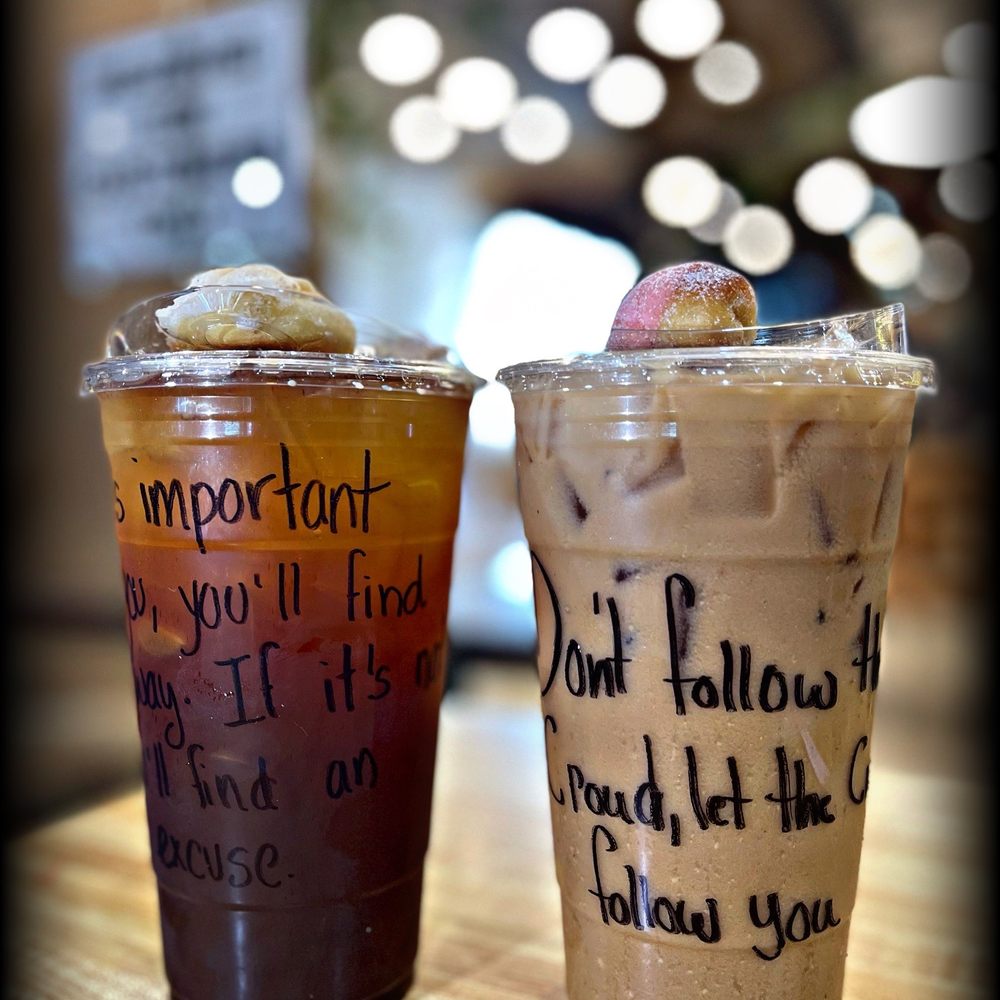 s important
ou, you'll find
way. If it's no
'll find an
excuse.
Don't follow th
Croud, let the C
follow you